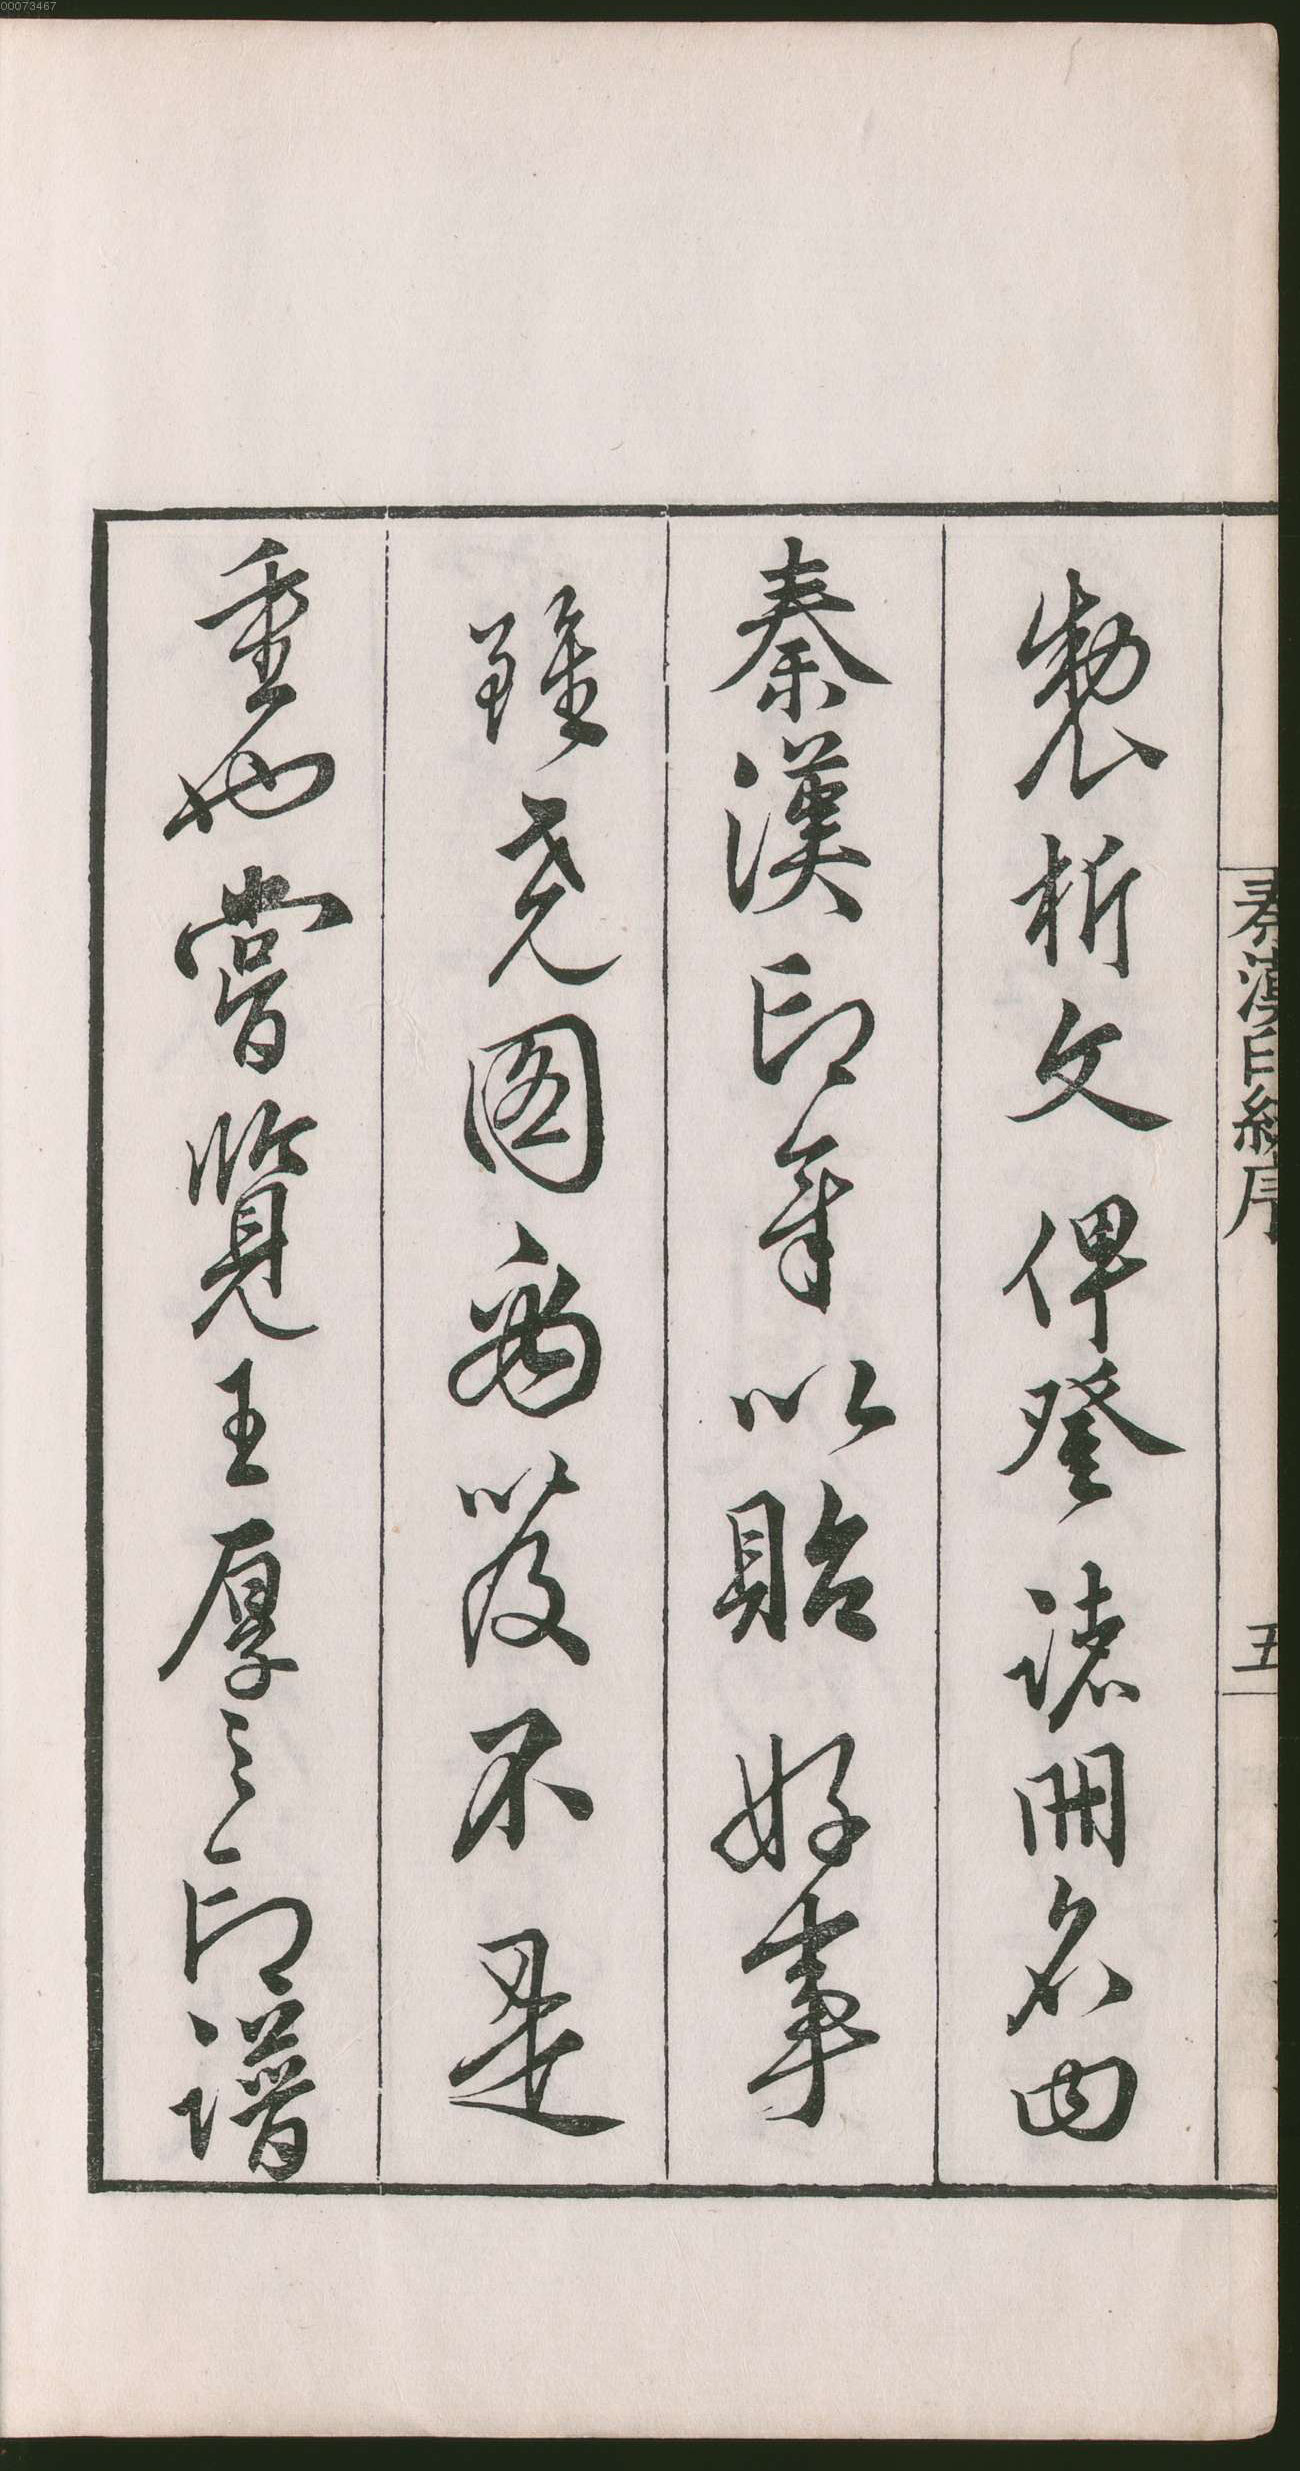 00073467
秦漢印統序 五
製析文俾登諸冊名曰
秦漢印章以貽好事
雖堯圖禹笈不是
重也嘗覽王厚之印譜